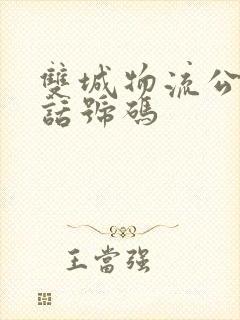 雙城物流公
話號碼
王當强